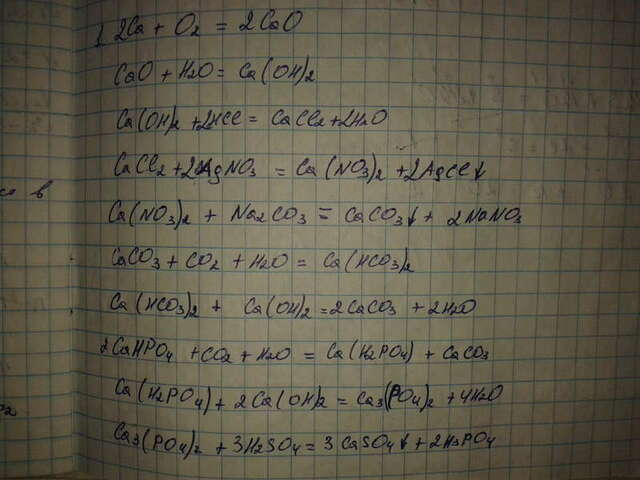 1 2Ca + O2 = 2CaO
CaO + H2O = Ca(OH)2
Ca(OH)2 + 2HCl = CaCl2 + 2H2O
CaCl2 + 2AgNO3 = Ca(NO3)2 + 2AgCl↓
Ca(NO3)2 + Na2CO3 = CaCO3↓ + 2NaNO3
CaCO3 + CO2 + H2O = Ca(HCO3)2
Ca(HCO3)2 + Ca(OH)2 = 2CaCO3 + 2H2O
2CaHPO4 + CO2 + H2O = Ca(H2PO4) + CaCO3
Ca(H2PO4) + 2Ca(OH)2 = Ca3(PO4)2 + 4H2O
Ca3(PO4)2 + 3H2SO4 = 3CaSO4↓ + 2H3PO4